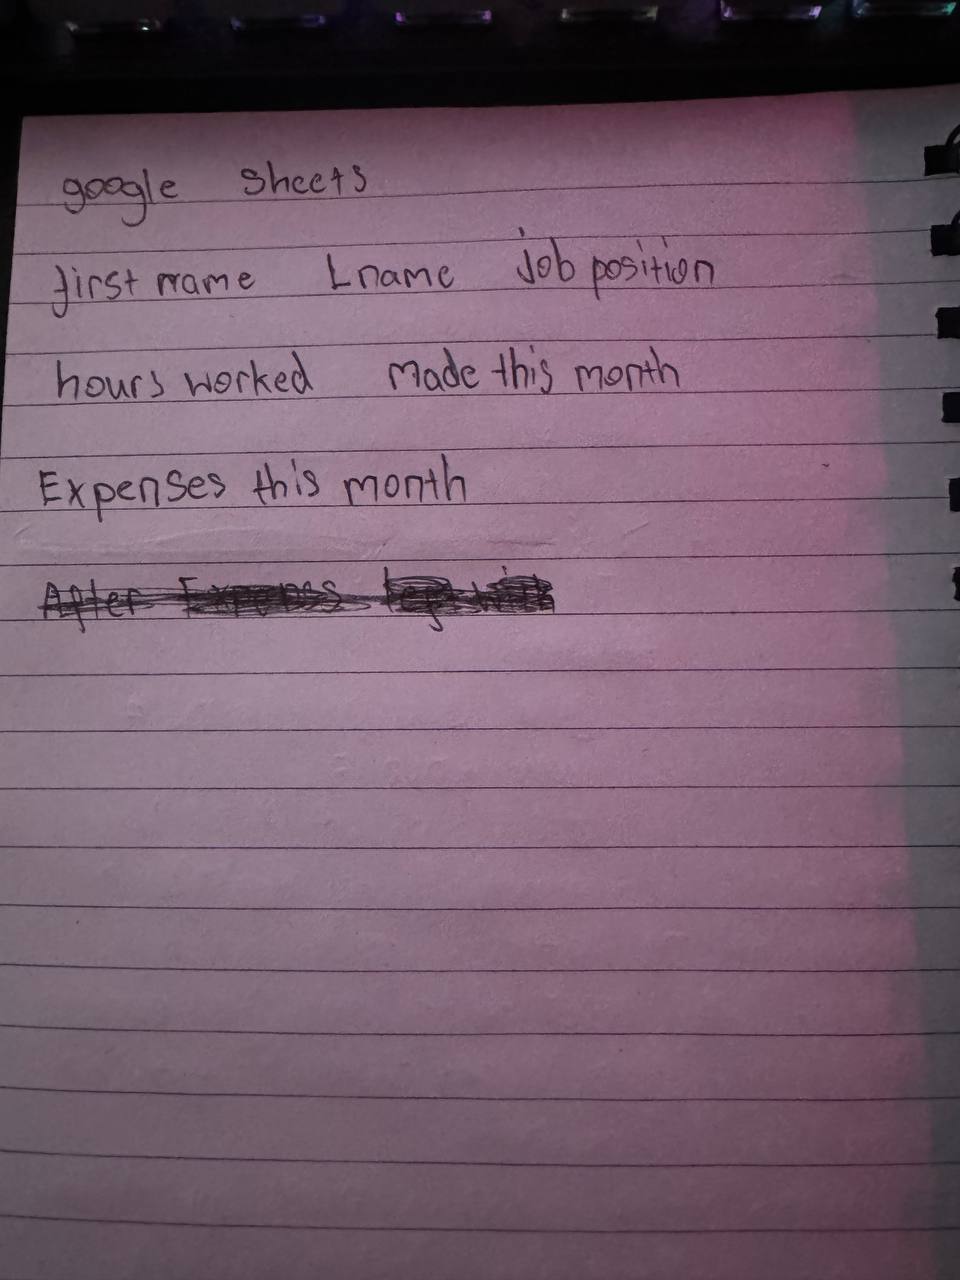 google sheets
first name Lname job position
hours worked made this month
Expenses this month
After